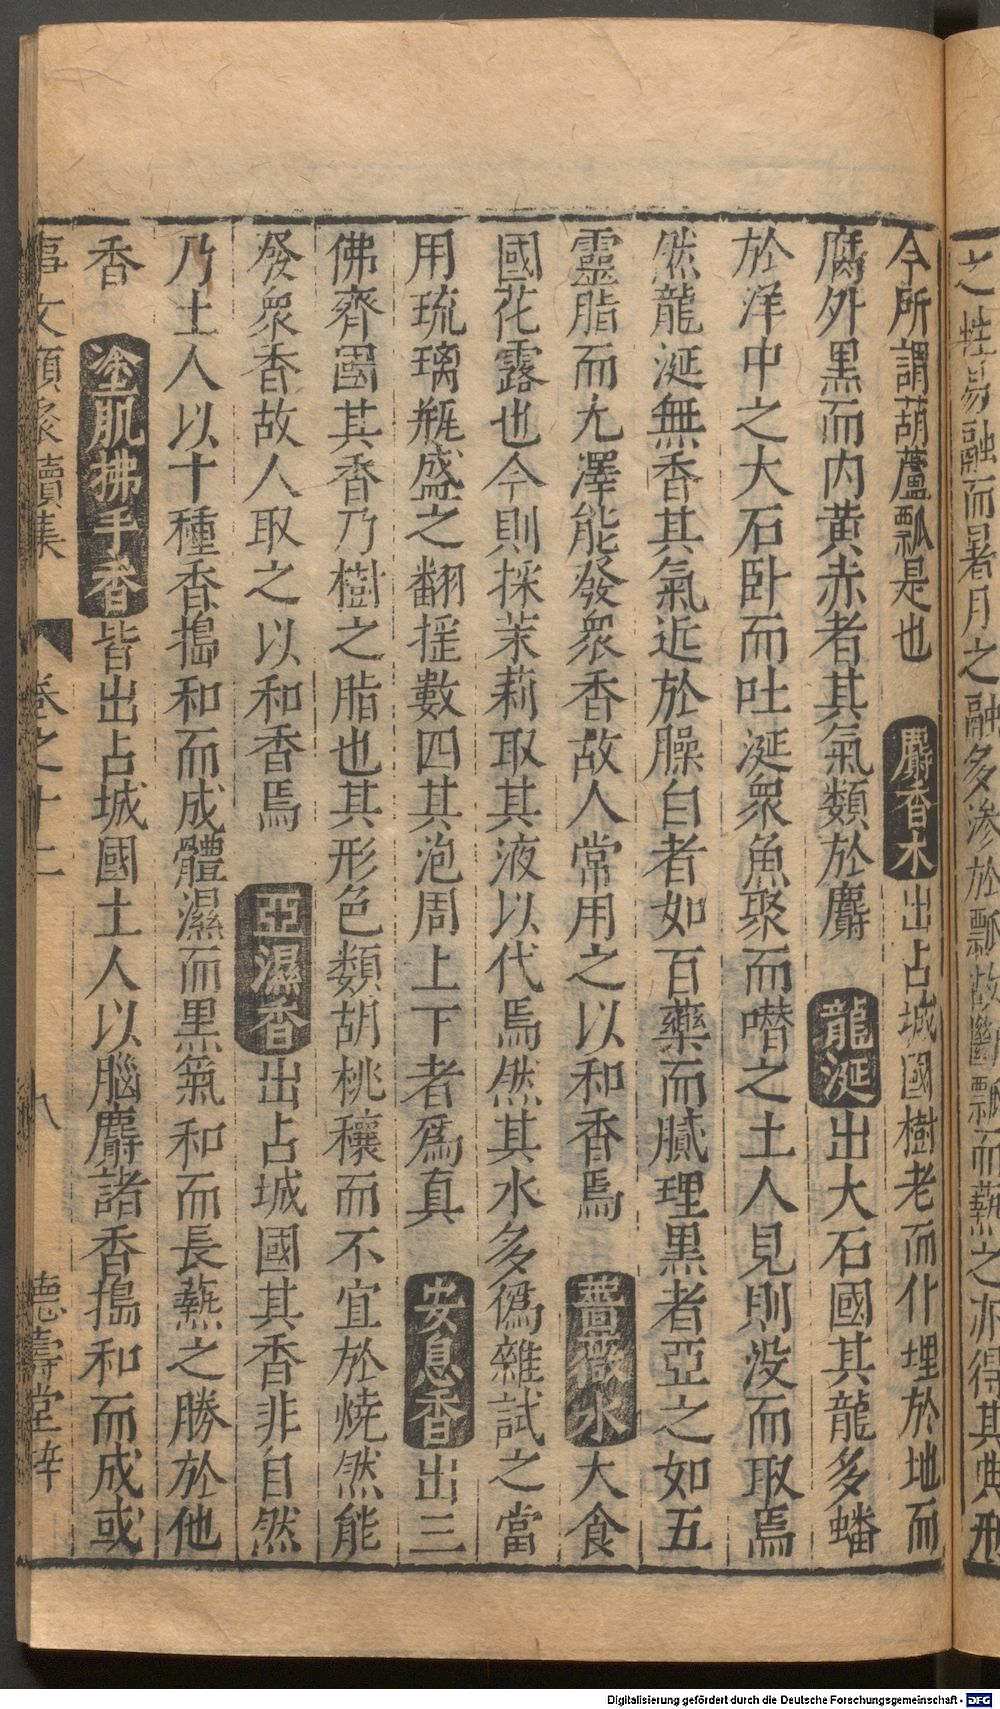 之性易融而暑月之融多滲於瓢故斷瓢而爇之亦得其典刑
今所謂葫蘆瓢是也　麝香木出占城國樹老而仆埋於地而
腐外黑而内黄赤者其氣類於麝　龍涎出大石國其龍多蟠
於洋中之大石卧而吐涎衆魚聚而噆之土人見則没而取焉
然龍涎無香其氣近於臊白者如百藥而膩理黑者亞之如五
靈脂而光澤能發衆香故人常用之以和香焉　薔薇水大食
國花露也今則採茉莉取其液以代焉然其水多偽雜試之當
用琉璃瓶盛之翻摇數四其泡周上下者爲真　安息香出三
佛齊國其香乃樹之脂也其形色類胡桃穰而不宜於焼然能
發衆香故人取之以和香焉　亞濕香出占城國其香非自然
乃土人以十種香搗和而成體濕而黑氣和而長爇之勝於他
香　塗肌拂手香皆出占城國土人以腦麝諸香搗和而成或
事文類聚續集　卷之十二　八　德壽堂梓
Digitalisierung gefördert durch die Deutsche Forschungsgemeinschaft - DFG